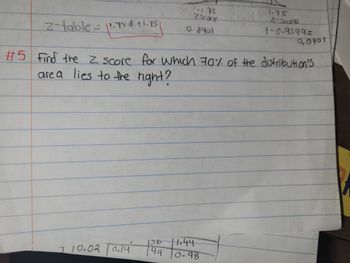 -1.75 1.75
z score z-score
z-table = -1.75 & +1.75 0.0401 1-0.9599=
0.0401
#5 Find the z score for which 70% of the distribution's
area lies to the right?
1.44
0.02 0.14 49 0.98